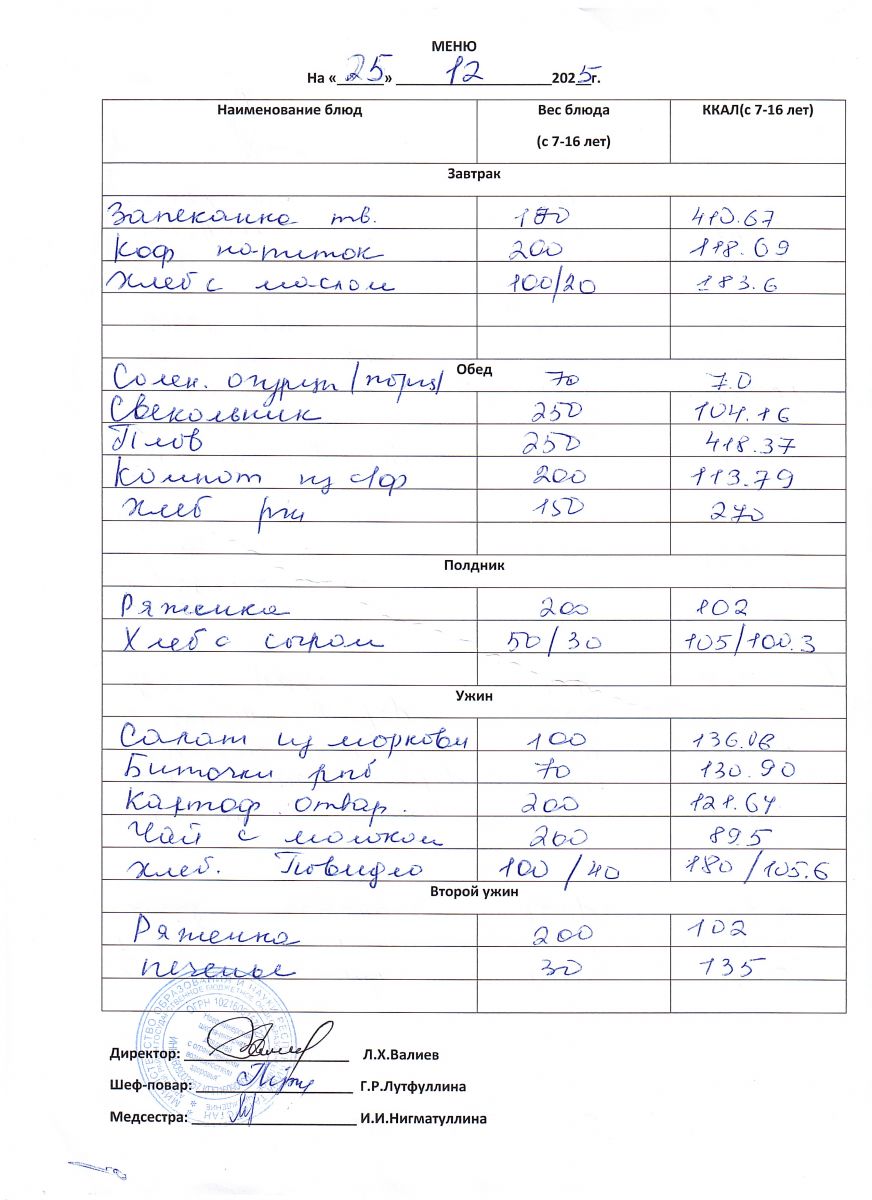 МЕНЮ
На «25» 12 2025г.
Наименование блюд Вес блюда (с 7-16 лет) ККАЛ(с 7-16 лет)
Завтрак
Запеканка тв. 170 410.67
Коф напиток 200 118.69
Хлеб с маслом 100/20 183.6
Обед
Солен. огурцы /порц/ 70 7.0
Свекольник 250 104.16
Плов 250 418.37
Компот из с/ф 200 113.79
Хлеб рж 150 270
Полдник
Ряженка 200 102
Хлеб с сыром 50/30 105/100.3
Ужин
Салат из моркови 100 136.08
Биточки рыб 70 130.90
Картоф. отвар. 200 121.64
Чай с молоком 200 89.5
Хлеб. Повидло 100/40 180/105.6
Второй ужин
Ряженка 200 102
печенье 30 135
Директор: Л.Х.Валиев
Шеф-повар: Г.Р.Лутфуллина
Медсестра: И.И.Нигматуллина